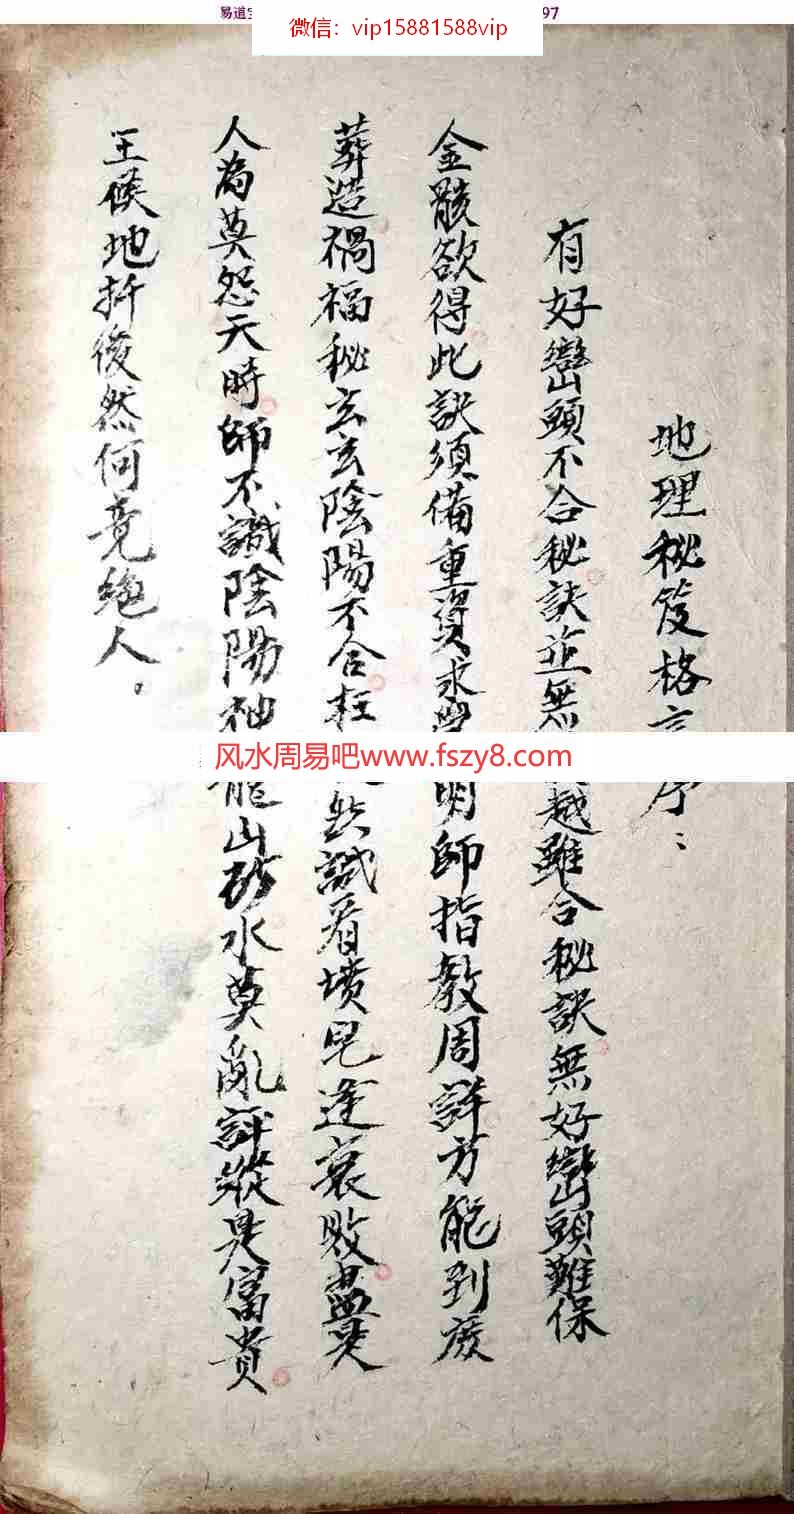 易道
97
微信：vip15881588vip
地理秘笈格言序：
有好巒頭不合秘訣並無越雖合秘訣無好巒頭難保
金骸欲得此訣須備重資求明師指教周詳方能到度
葬造禍福秘玄玄陰陽不合枉然識看墳皂逢衰敗盡是
人為莫怨天時師不識陰陽神龍山砂水莫亂評縱是富貴
王侯地折後然何竟絕人。
风水周易吧www.fszy8.com